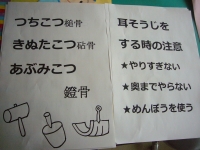 つちこつ槌骨
きぬたこつ砧骨
あぶみこつ
鐙骨
耳そうじを
する時の注意
★やりすぎない
★奥までやらない
★めんぼうを使う